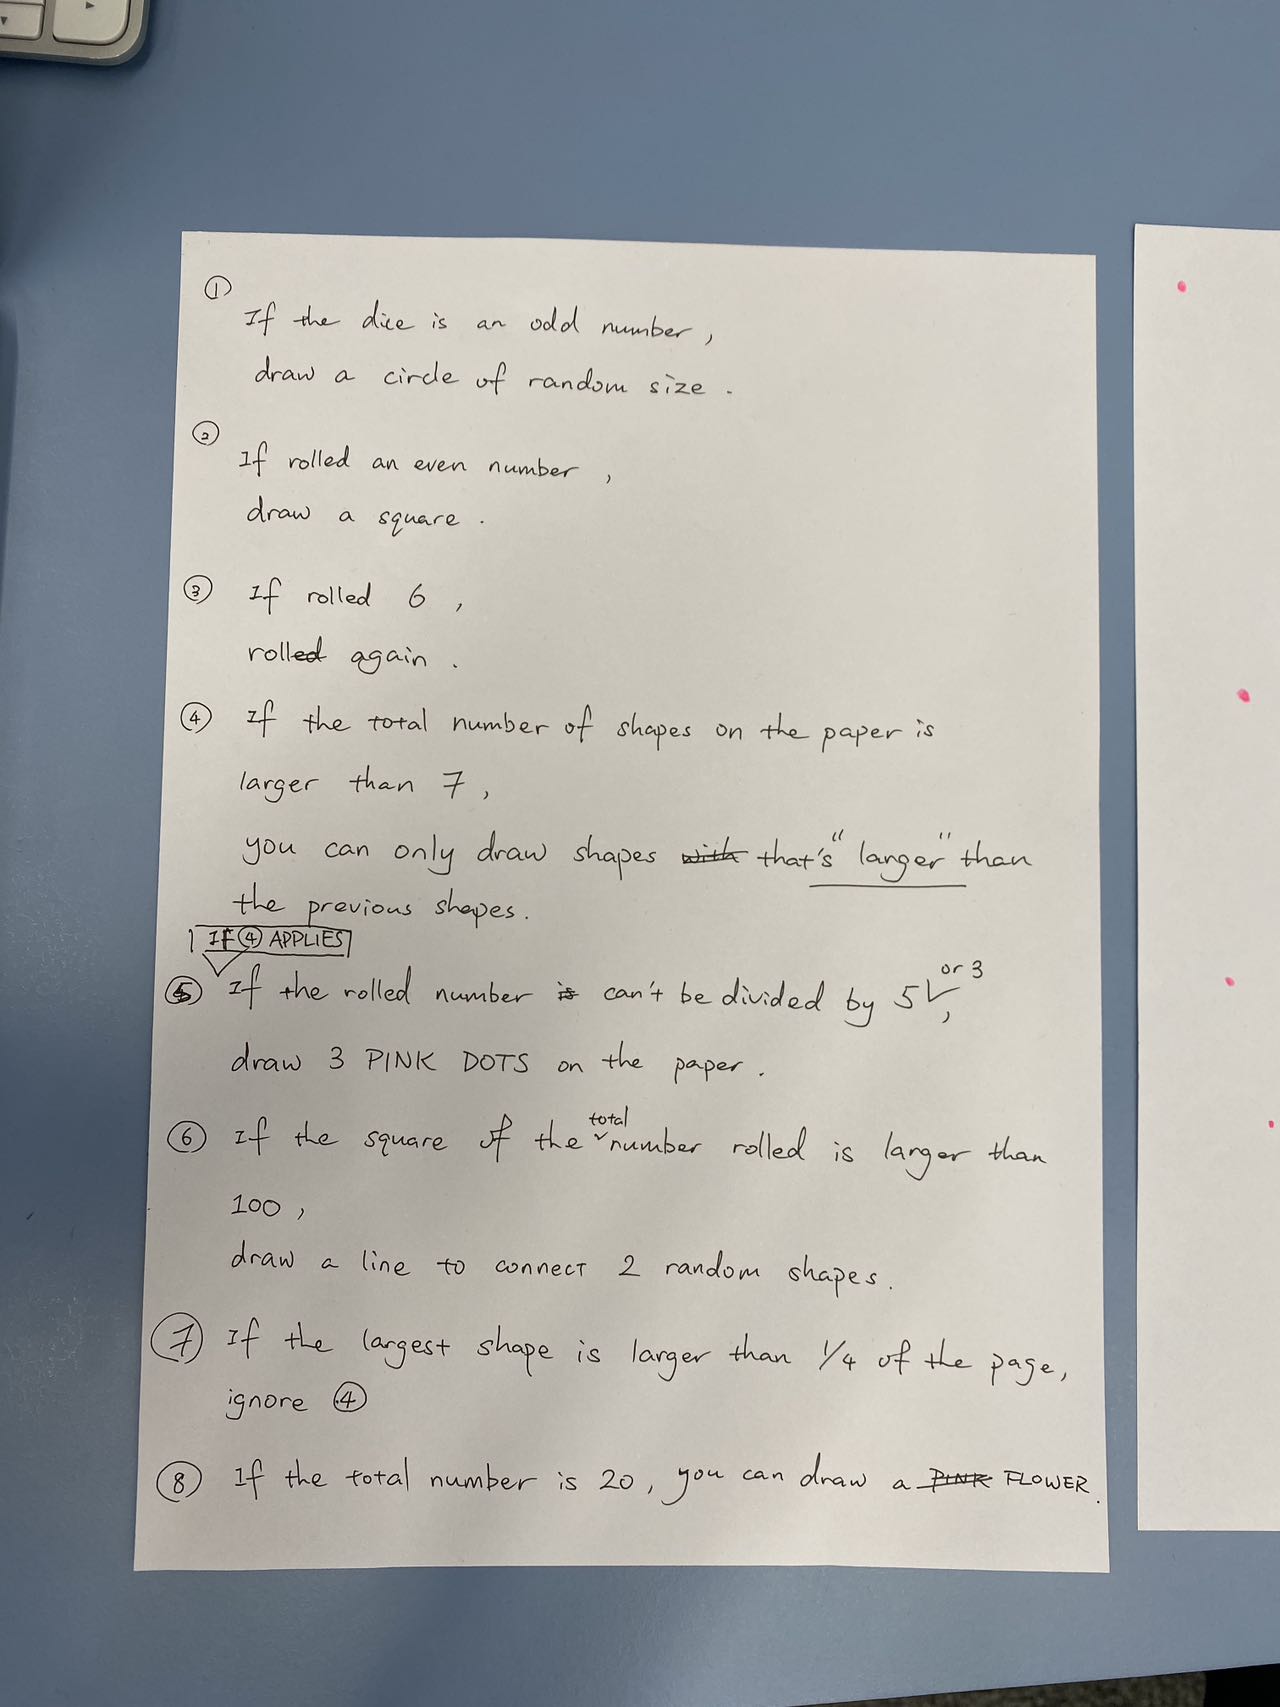 ①
If the dice is an odd number,
draw a circle of random size.
②
If rolled an even number,
draw a square.
③ If rolled 6,
rolled again.
④ If the total number of shapes on the paper is
larger than 7,
you can only draw shapes with that's "larger" than
the previous shapes.
IF ④ APPLIES
⑤ If the rolled number is can't be divided by 5 or 3,
draw 3 PINK DOTS on the paper.
⑥ If the square of the total number rolled is larger than
100,
draw a line to connect 2 random shapes.
⑦ If the largest shape is larger than 1/4 of the page,
ignore ④
⑧ If the total number is 20, you can draw a PINK FLOWER.